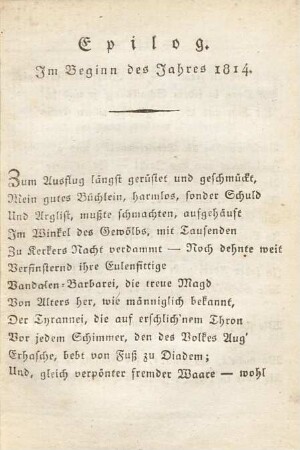 Epilog.
Im Beginn des Jahres 1814.
Zum Ausflug längst gerüstet und geschmückt,
Mein gutes Büchlein, harmlos, sonder Schuld
Und Arglist, mußte schmachten, aufgehäuft
Im Winkel des Gewölbs, mit Tausenden
Zu Kerkers Nacht verdammt — Noch dehnte weit
Verfinsternd ihre Eulenfittige
Vandalen-Barbarei, die treue Magd
Von Alters her, wie männiglich bekannt,
Der Tyrannei, die auf erschlich'nem Thron
Vor jedem Schimmer, den des Volkes Aug'
Erhasche, bebt von Fuß zu Diadem;
Und, gleich verpönter fremder Waare — wohl